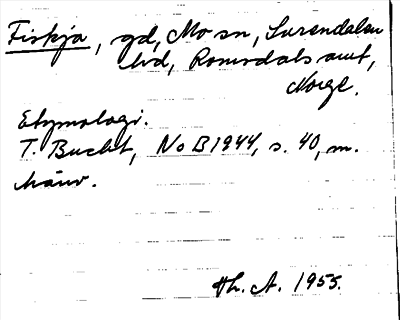 Fiskja, gd, Mo sn, Surendalen
hd, Romsdals amt,
Norge.
Etymologi.
T. Bucht, NoB 1944, s. 40, m.
hänv.
Hh. A. 1955.